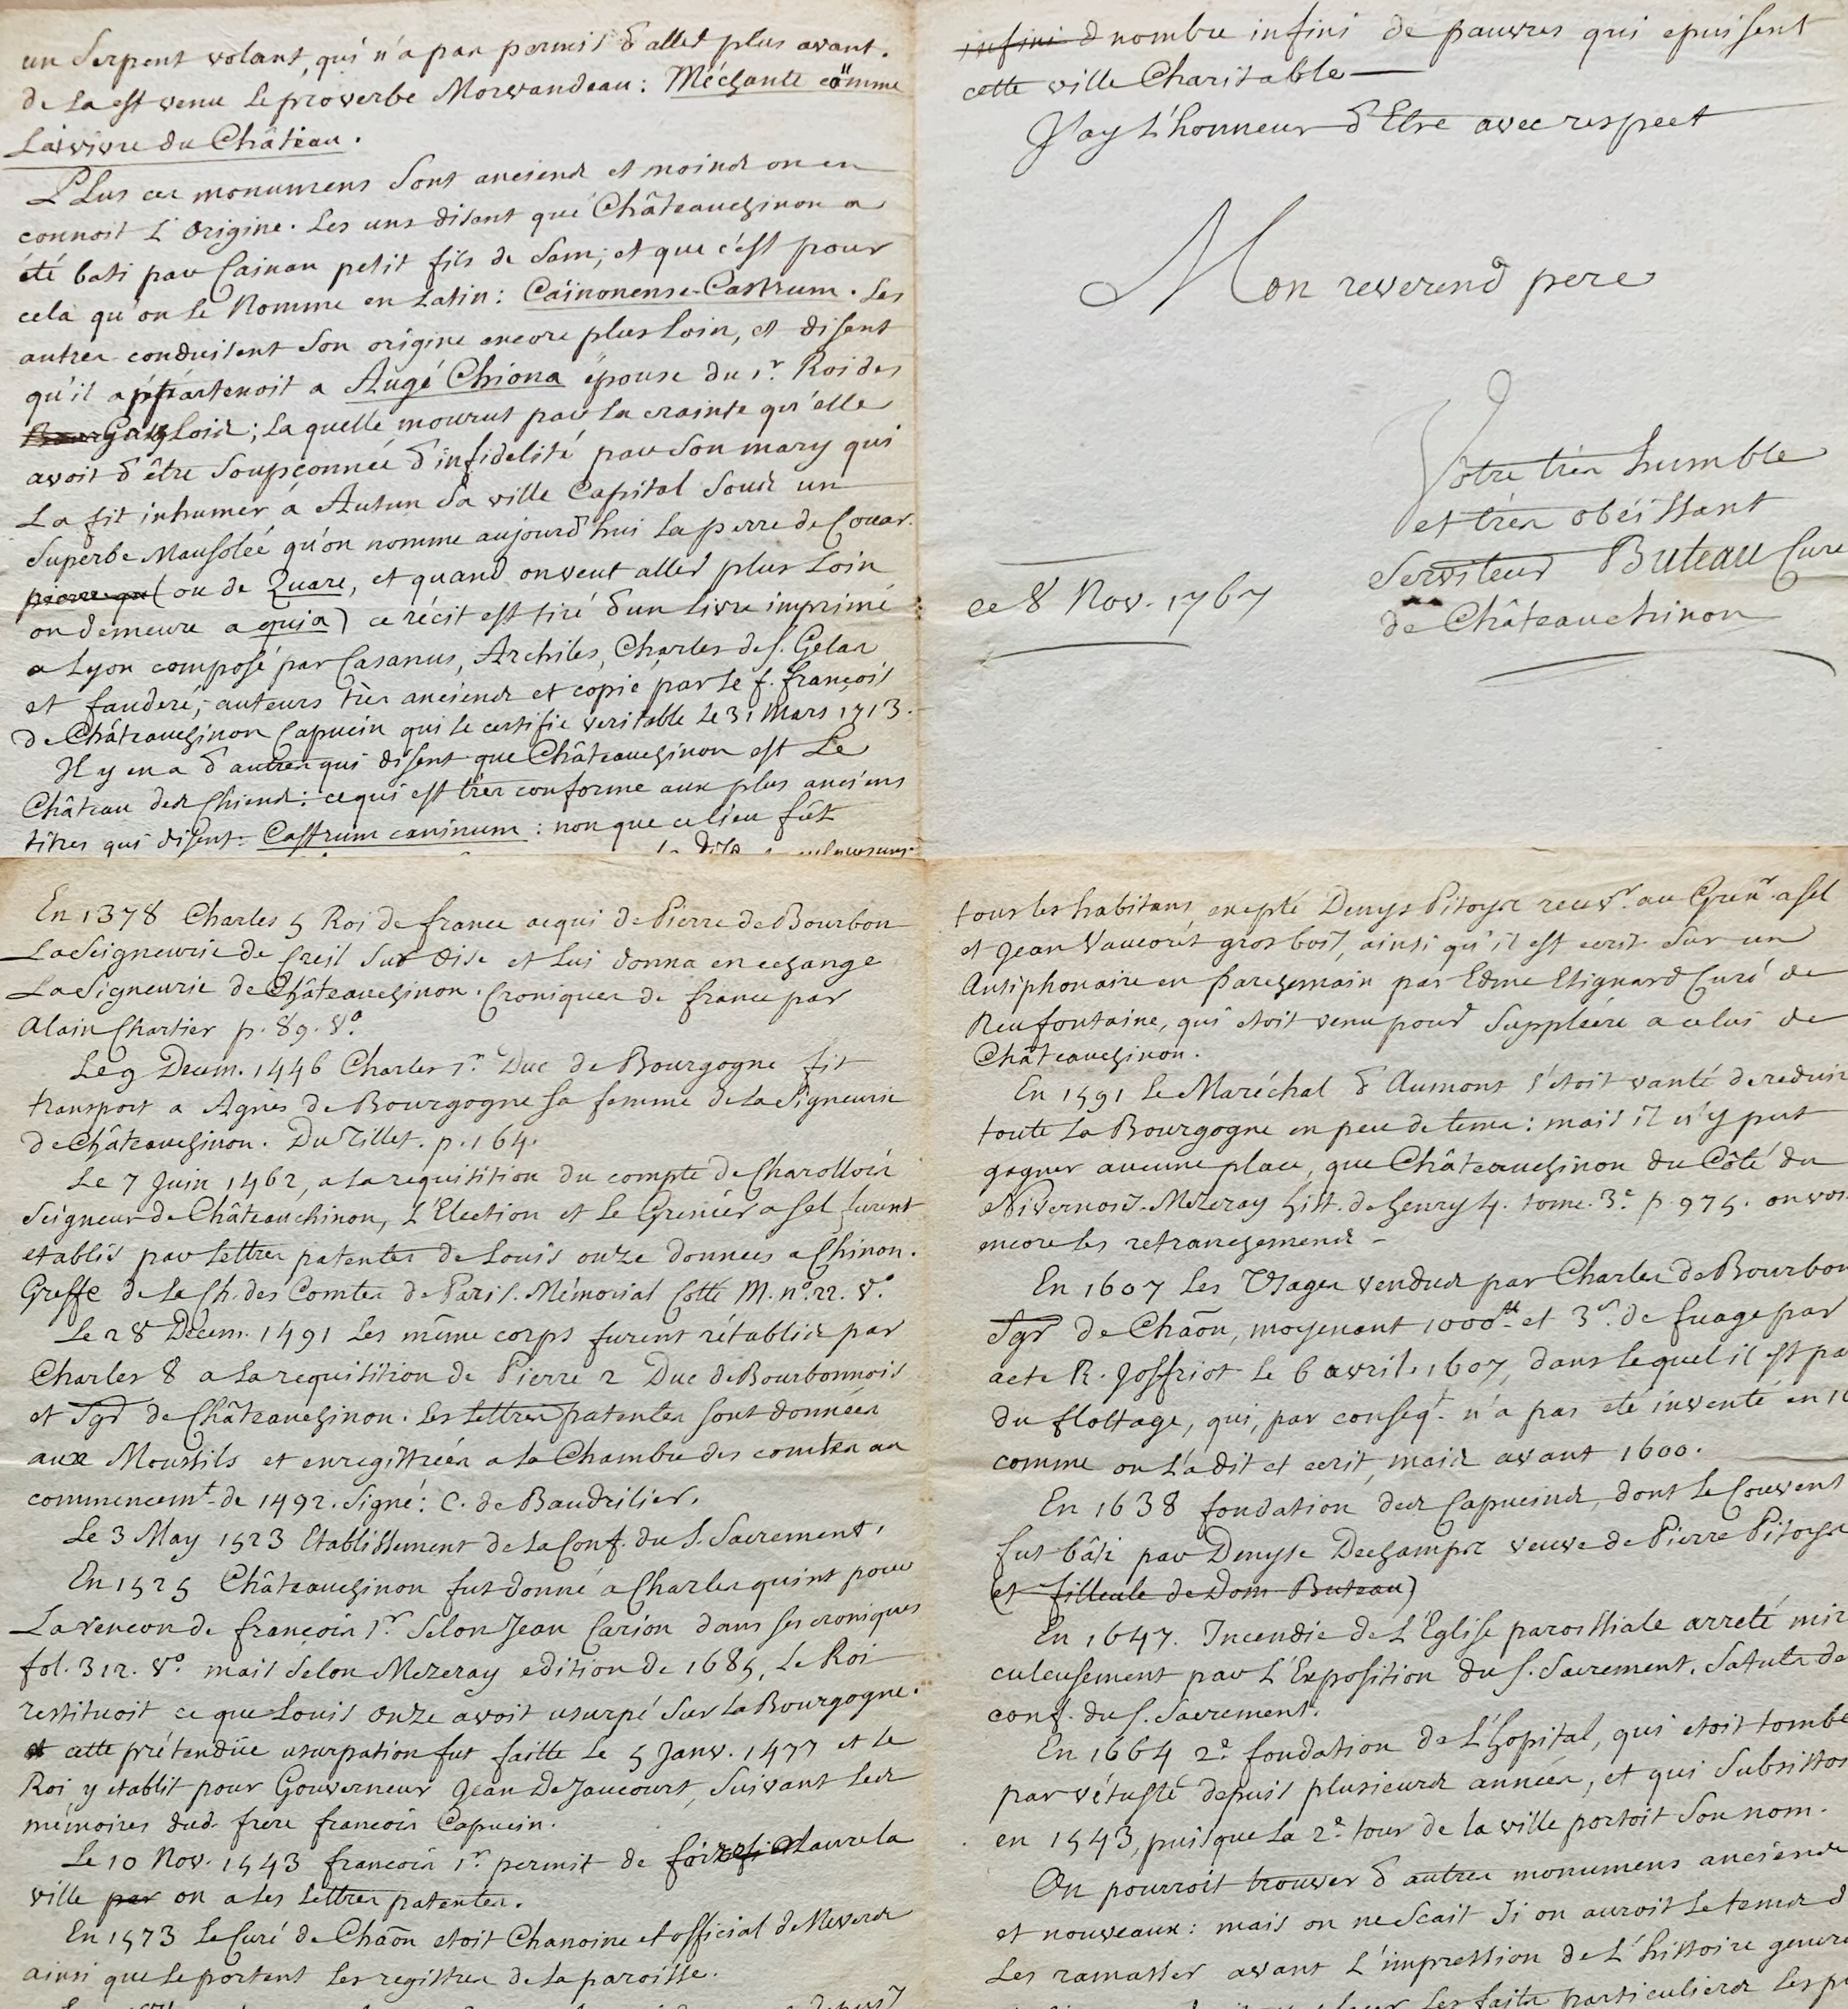 un Serpent volant, qui n'a pas permis d'aller plus avant.
de la est venu le proverbe Morvandeau: Méchante cömme
La vivre du Château.
Plus ces monumens sont anciens et moins on en
connoit l'origine. Les uns disant que Châteauchinon a
été bati par Cainan petit fils de Sam; et que c'est pour
cela qu'on le Nomme en Latin: Caïnonense-Castrum. Les
autres conduisent son origine encore plus loin, et disent
qu'il appartenoit a Augé Chiona épouse du 1r. Roi des
laquelle mourut par la crainte qu'elle
avoit d'être soupçonnée d'infidelité par son mary qui
La fit inhumer à Autun sa ville Capital sous un
superbe Mausoleé qu'on nomme aujourd'hui la perre de Couar.
(ou de Quare, et quand on veut aller plus loin
on demeure a quia) ce récit est tiré d'un livre imprimé
a Lyon composé par Casanus, Archiles, Charles de S. Gelas
et fauderé, auteurs très anciens et copié par le f. françois
de Châteauchinon Capucin qui le certifie veritable le 31 Mars 1713.
Il y en a d'autres qui disent que Châteauchinon est Le
Château des Chiens: ce qui est très conforme aux plus anciens
titres qui disent: Castrum caninum: non que ce lieu fût
infini d nombre infini de pauvres qui epuisent
cette ville Charitable
J'ay L'honneur d'Etre avec respect
Mon reverend pere
Votre très humble
et très obéissant
Serviteur Buteau Curé
de Châteauchinon
ce 8 Nov. 1767
En 1378 Charles 5 Roi de france acqui de Pierre de Bourbon
La Seigneurie de Creil sur Oise et lui donna en echange
La Signeurie de Châteauchinon. Croniques de france par
Alain Chartier p. 89. Vo.
Le 9 Decem. 1446 Charles 1r. Duc de Bourgogne fit
transport a Agnès de Bourgogne sa femme de la Signeurie
de Châteauchinon. Du Tillet. p. 164.
Le 7 Juin 1462, a la requisition du compte de Charollois
Seigneur de Châteauchinon, L'Election et le Grenier a sel furent
etablis par lettres patentes de Louis onze données a Chinon.
Greffe de la Ch. des Comtes de Paris. Mémorial Cotté M. no. 22. Vo.
Le 28 Décem. 1491 les même corps furent rétablis par
Charles 8 a la requisition de Pierre 2 Duc de Bourbonnois
et Sgr de Châteauchinon. Les lettres patentes sont données
aux Moustils et enregistrées a la Chambre des comtes au
commencemt. de 1492. Signé: C. de Baudrilier.
Le 3 May 1523 Etablissement de la Conf. du S. Sacrement.
En 1525 Châteauchinon fut donné a Charles quint pour
La rencon de françois 1r. Selon Jean Carion dans ses croniques
fol. 312. Vo. mais selon Mezeray edition de 1685, Le Roi
restituoit ce que Louis Onze avoit usurpé sur la Bourgogne.
cette prétendüe usurpation fut faitte le 5 Janv. 1477 et le
Roi, y etablit pour Gouverneur Jean De Jaucourt, Suivant les
mémoires dud. frere françois Capucin.
Le 10 Nov. 1543 françois 1r. permit de la
ville par on a les lettres patentes.
En 1573 Le Curé de Chaõn etoit Chanoine et official de Nevers
ainsi que le portent les registres de la paroisse.
tous les habitans, excepté Denys Pitoys recevr. au Grenr. a sel
et Jean Vaucoret gros bost, ainsi qu'il est ecrit sur un
Antiphonaire en parchemain par Edme Etignard Curé de
Reufontaine, qui etoit venu pour suppleére a celui de
Châteauchinon.
En 1591 le Maréchal d'Aumont s'étoit vanté de reduir
toute la Bourgogne en peu de tems: mais il n'y put
gagner aucune place, que Châteauchinon du Côté du
Nivernois. Mezeray hist. de henry 4. tome. 3e. p. 975. on voi
encore les retranchemens
En 1607 Les Usages vendus par Charles de Bourbon
Sgr de Chaõn, moyenant 1000tt. et 3s. de fuage par
acte R. Joffriot le 6 avril 1607, dans lequel il est pa
du flottage, qui, par conseqt. n'a pas eté inventé en 16
comme on l'a dit et ecrit, mais avant 1600.
En 1638 fondation des Capucins, dont le Couvent
fut bâti par Denyse Dechamps veuve de Pierre Pitoys
(et filleule de Dom Buteau)
En 1647. Incendie de L'Eglise paroissiale arreté mir
culeusement par L'Exposition du S. Sacrement. Satuts de
conf. du S. Sacrement.
En 1664 2e. fondation de L'hopital, qui etoit tombé
par vétusté depuis plusieurs années, et qui subsistoi
en 1543, puisque la 2e. tour de la ville portoit son nom.
On pourroit trouver d'autres monumens anciens
et nouveaux: mais on ne scait si on auroit le tems d
Les ramasser avant l'impression de L'histoire genera
les faits particuliers les p